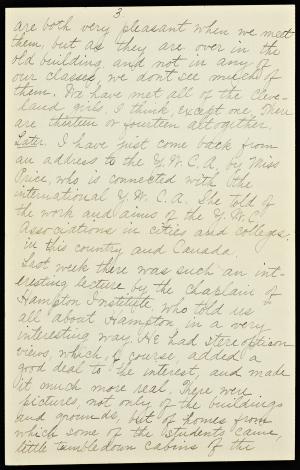 3
are both very pleasant when we meet
them, but as they are over in the
old building, and not in any of
our classes, we don't see much of
them. We have met all of the Cleve-
land girls, I think, except one. There
are thirteen or fourteen altogether.
Later. I have just come back from
an address to the Y.W.C.A. by Miss
Price, who is connected with the
international Y.W.C.A. She told of
the work and aims of the Y.W.C.
Associations in cities and colleges
in this country and Canada.
Last week there was such an int-
eresting lecture by the chaplain of
Hampton Institute, who told us
all about Hampton in a very
interesting way. He had stereopticon
views, which, of course, added a
good deal to the interest, and made
it much more real. There were
pictures, not only of the buildings
and grounds, but of homes from
which some of the students came,
little tumbledown cabins of the